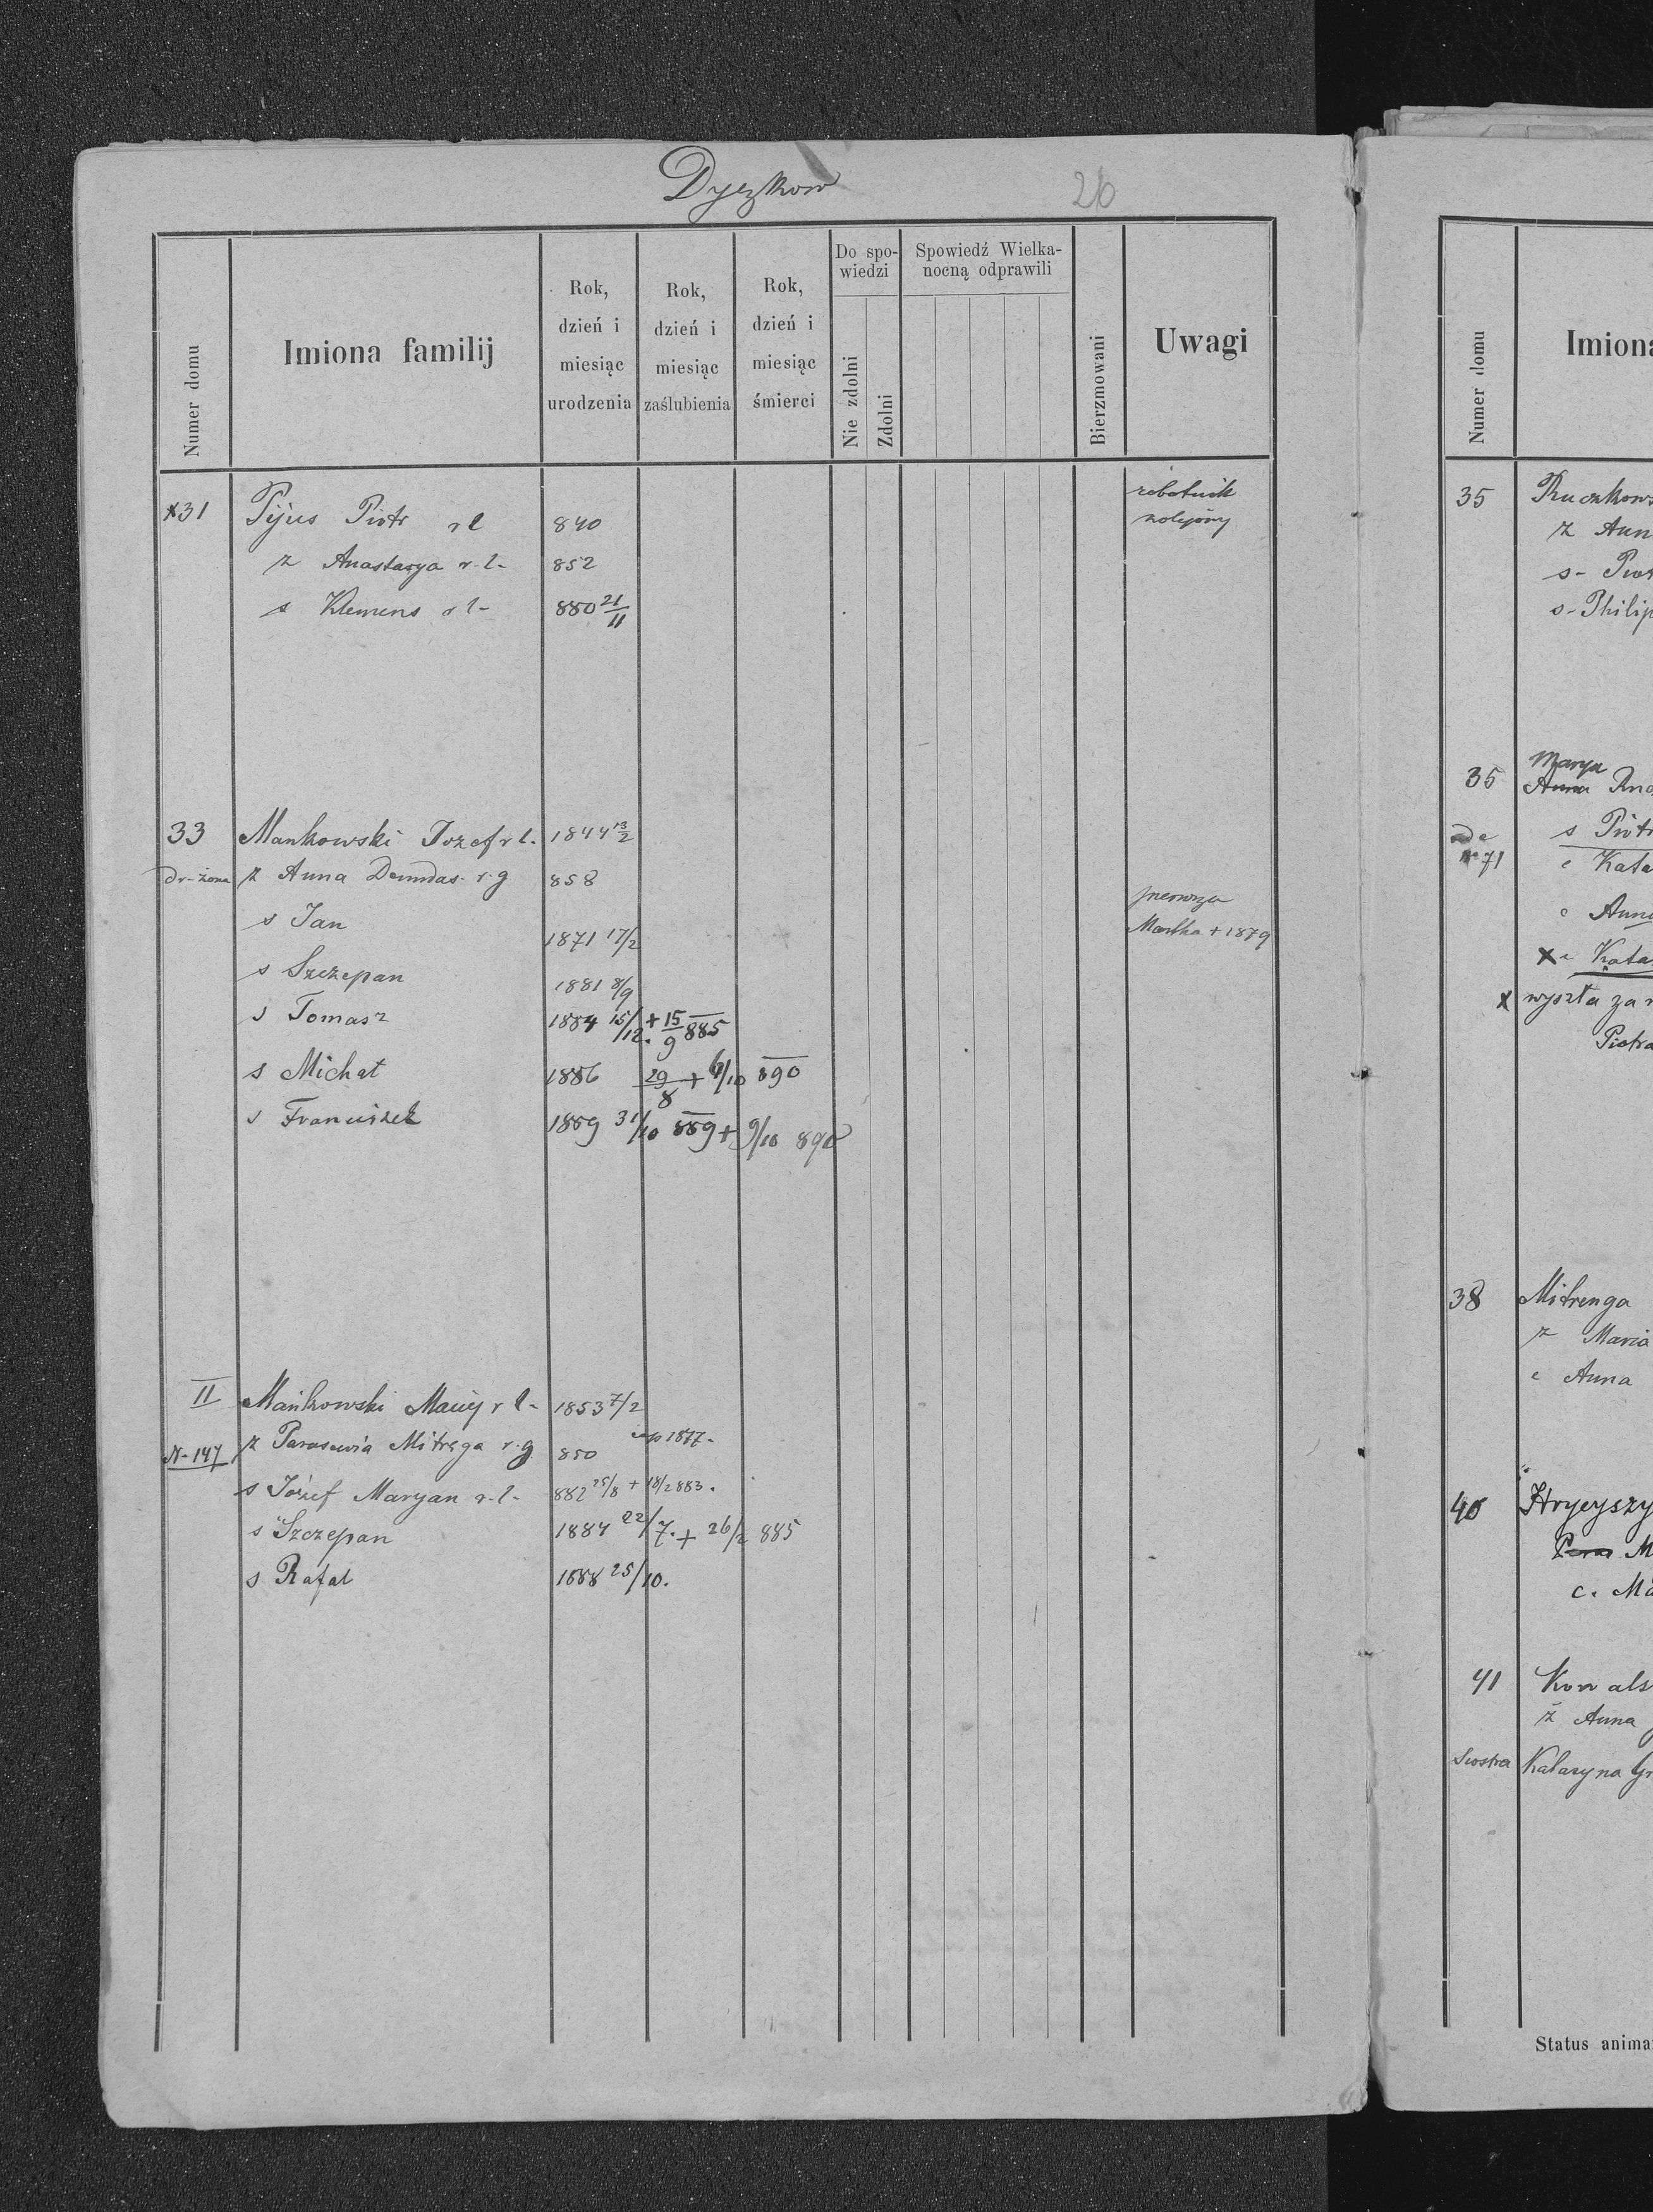 Dyczkow
26
Numer domu
Imiona familij
Rok, dzień i miesiąc urodzenia
Rok, dzień i miesiąc zaślubienia
Rok, dzień i miesiąc śmierci
Do spo-
wiedzi
Nie zdolni
Zdolni
Spowiedź Wielka-
nocną odprawili
Bierzmowani
Uwagi
x31 Pijus Piotr r l 840 robotnik
kolejowy
ż Anastazya r. l- 852
s Klemens r l- 880 21/11
33 Mankowski Jozef r l. 1844 13/2
dr-żona ż Anna Demdas r. g 858
pierwsza
s Jan 1871 17/2 Martha + 1879
s Szczepan 1881 8/9
s Tomasz 1884 15/12. + 15/9 885
s Michał 1886 29/8 + 6/10 890
s Franciszek 1889 31/10 889 + 9/10 890
II Mańkowski Maciej r l- 1853 7/2
N-147 ż Parascevia Mitręga r. g 850 cop 1877-
s Józef Maryan r. l- 882 25/8 + 18/2 883.
s Szczepan 1884 22/7. + 26/2 885
s Rafał 1888 25/10.
Numer domu
Imiona
35 Ruczkows
ż Ann
s- Piotr
s- Philip
Marya
35 Anna Rucz
s Piotr
de
Nr 71 c Kata
c Anna
x c Kata
x wyszła za
Piotra
38 Mitrenga
ż Maria
c Anna
40 Hryeyszy
Paras M
c. Ma
41 Kowals
ż Anna
Siostra Katarzyna Gr
Status anima